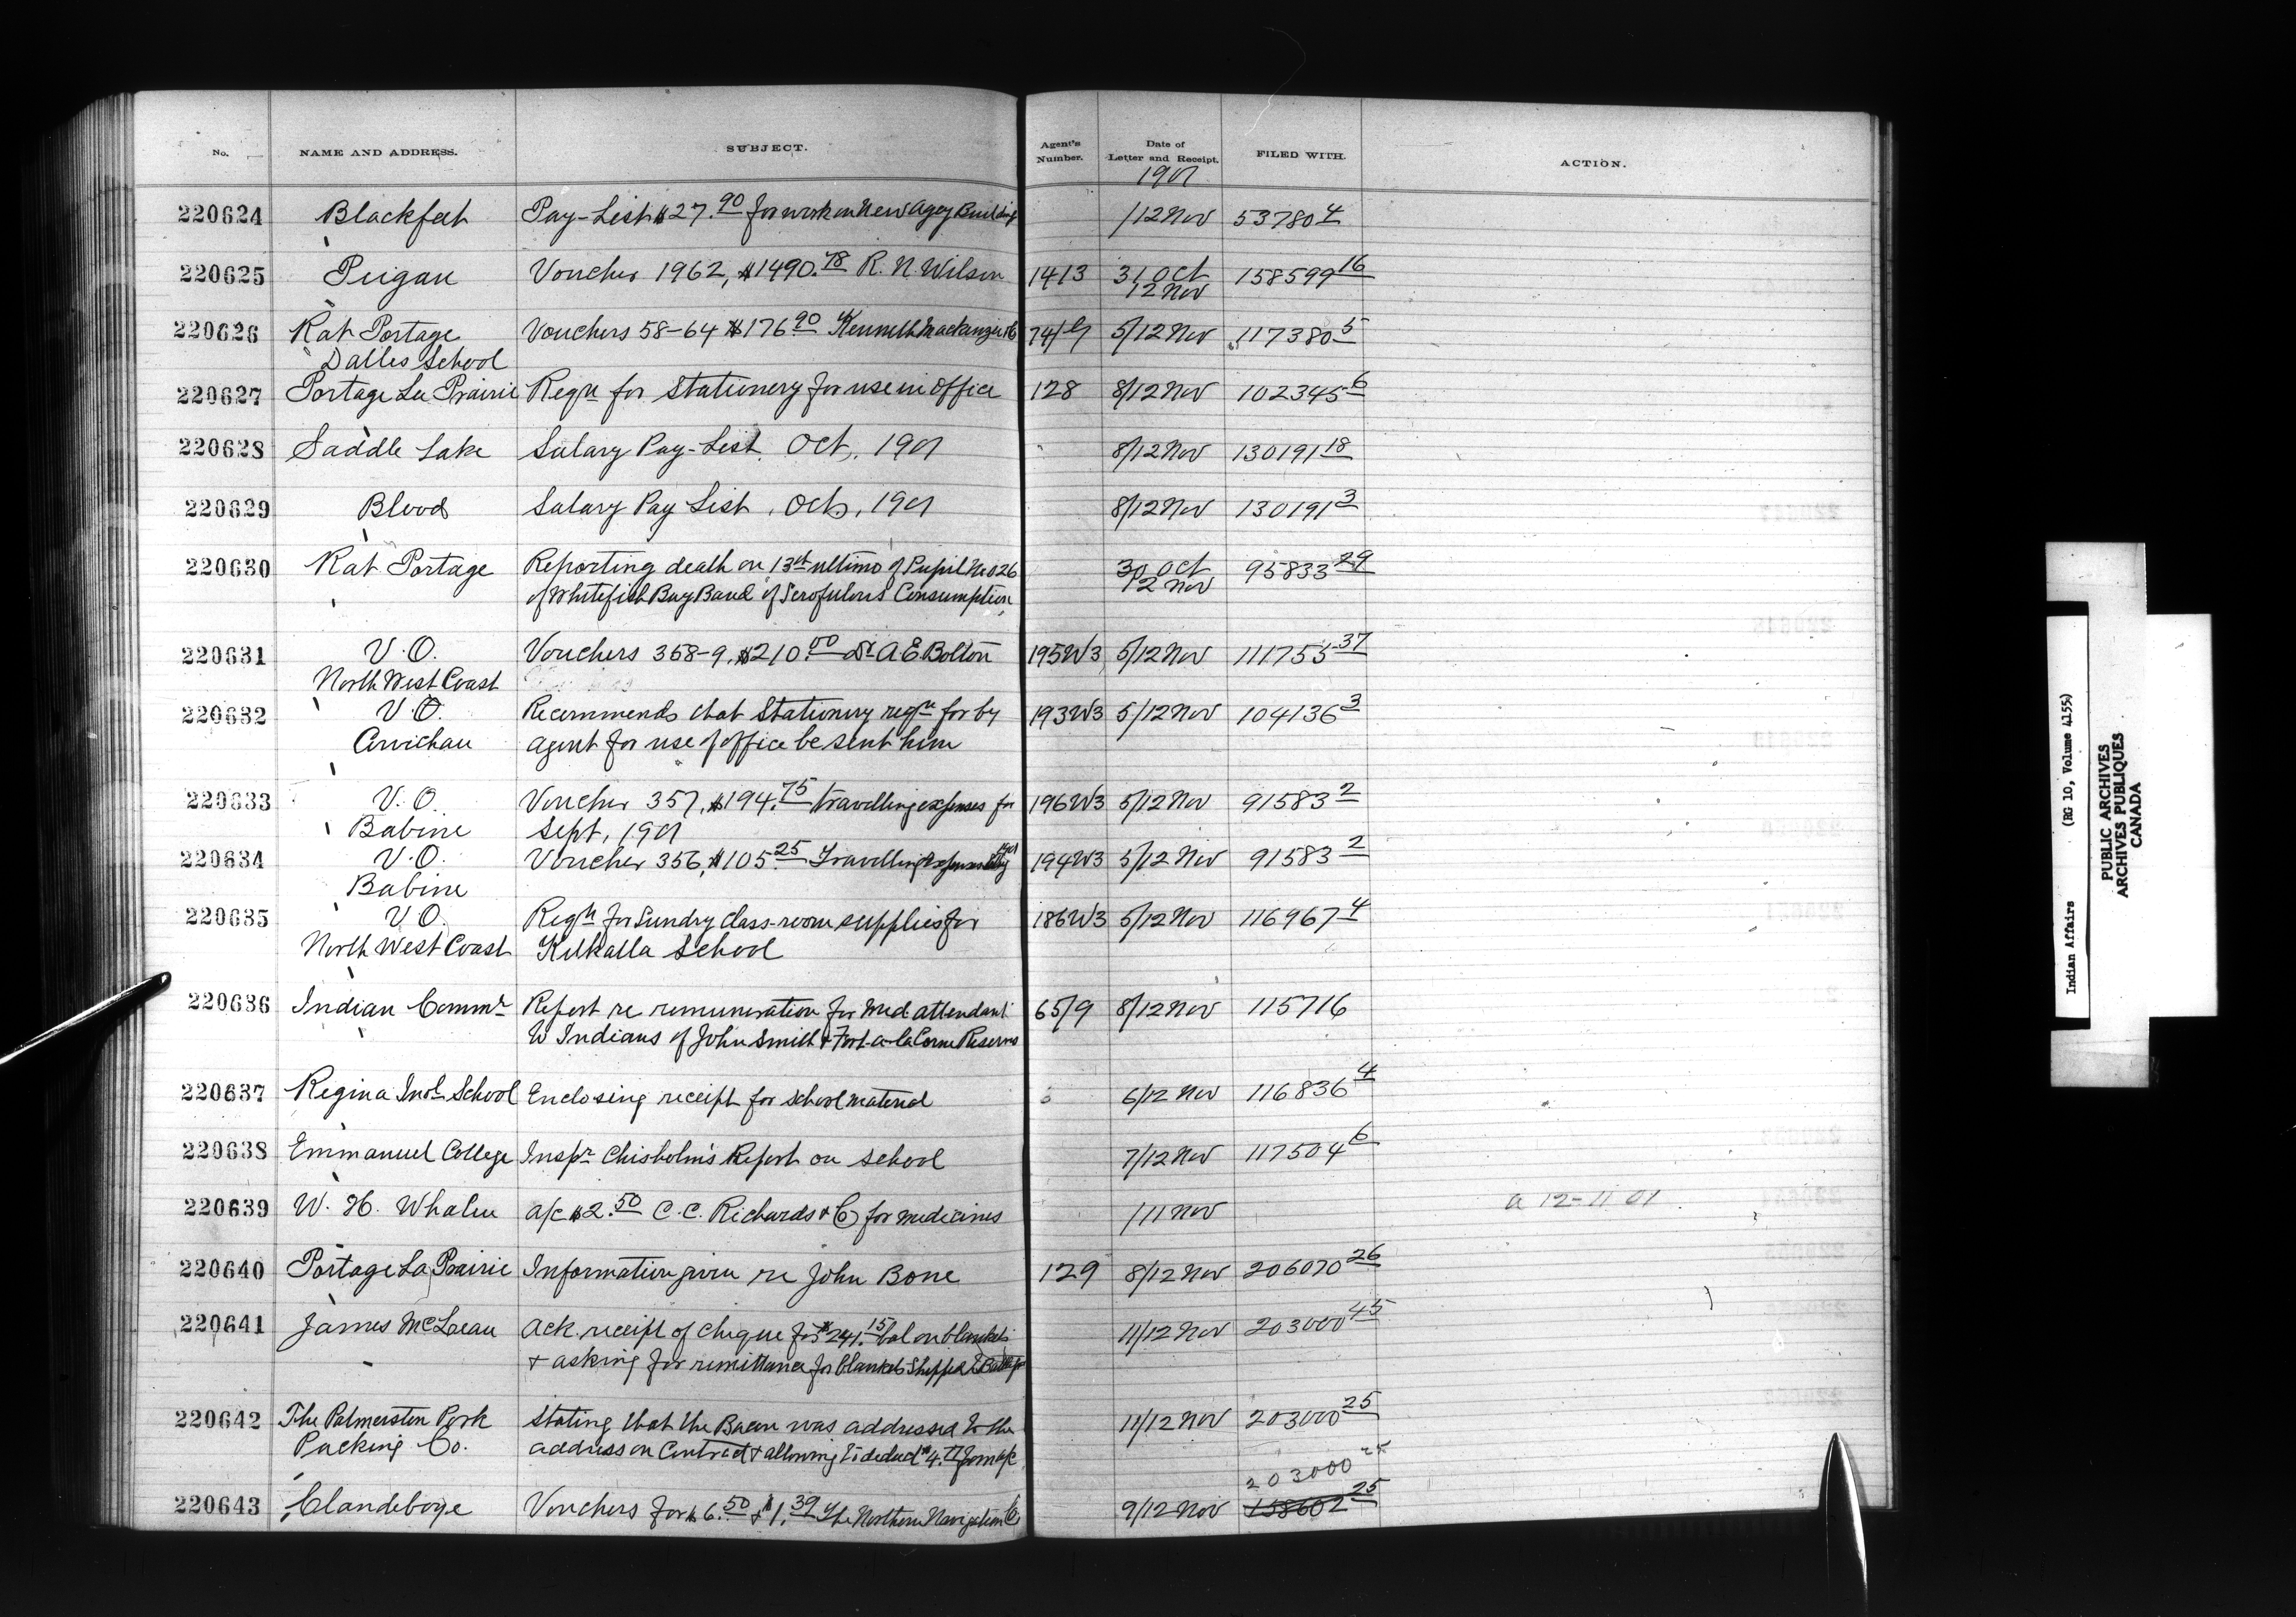 No. NAME AND ADDRESS. SUBJECT. Agent's Number. Date of Letter and Receipt. FILED WITH. ACTION.
1901
220624 Blackfeet Pay-List $27.90 for work on New Agcy Building /12 Nov 53780 4
220625 Peigan Voucher 1962, $1490.78 R. N. Wilson 1413 31 Oct 158599 16
12 Nov
220626 Rat Portage Vouchers 58-64 $176.90 Kenneth Mackenzie 5/12 Nov 117380 5
Dalles School
220627 Portage La Prairie Reqn for Stationery for use in Office 128 8/12 Nov 102345 6
220628 Saddle Lake Salary Pay-List. Oct, 1901 8/12 Nov 130191 18
220629 Blood Salary Pay List, Oct, 1901 8/12 Nov 130191 3
220630 Rat Portage Reporting death on 13th ultimo of Pupil No 026 30 Oct 95833 29
of Whitefish Bay Band of Scrofulous Consumption 12 Nov
220631 V.O. Vouchers 358-9, $210.00 Dr A. E. Bolton 195W3 5/12 Nov 111755 37
North West Coast
220632 V.O. Recommends that Stationery reqn for by 193W3 5/12 Nov 104136 3
Cowichan agent for use of office be sent him
220633 V.O. Voucher 357, $194.75 travelling expenses for 196W3 5/12 Nov 91583 2
Babine Sept, 1901
220634 V.O. Voucher 356, $105.25 Travelling Expenses 194W3 5/12 Nov 91583 2
Babine
220635 V.O. Reqn for Sundry class-room supplies for 186W3 5/12 Nov 116967 4
North West Coast School
220636 Indian Commr Report re remuneration for med attendant 65/9 8/12 Nov 115716
to Indians of John Smith & Fort-a-la Corne Reserves
220637 Regina Indl School Enclosing receipt for school material 6/12 Nov 116836 4
220638 Emmanuel College Inspr Chisholm's Report on School 7/12 Nov 117504 6
220639 W. H. Whalen a/c $2.50 C. C. Richards & Co for medicines /11 Nov a 12-11 01
220640 Portage La Prairie Information given re John Bone 129 8/12 Nov 206070 26
220641 James McLean Ack. receipt of cheque for $241.15 bal on blankets 11/12 Nov 203000 45
& asking for remittance for blankets shipped
220642 The Palmerston Pork Stating that the Bacon was addressed to the 11/12 Nov 203000 25
Packing Co. address on Contract & allowing to deduct $4. from a/c
203000 25
220643 Clandeboye Vouchers for $6.50 & $1.39 The Northern Navigation Co 9/12 Nov 158602 25
Indian Affairs (RG 10, Volume 4155)
PUBLIC ARCHIVES
ARCHIVES PUBLIQUES
CANADA